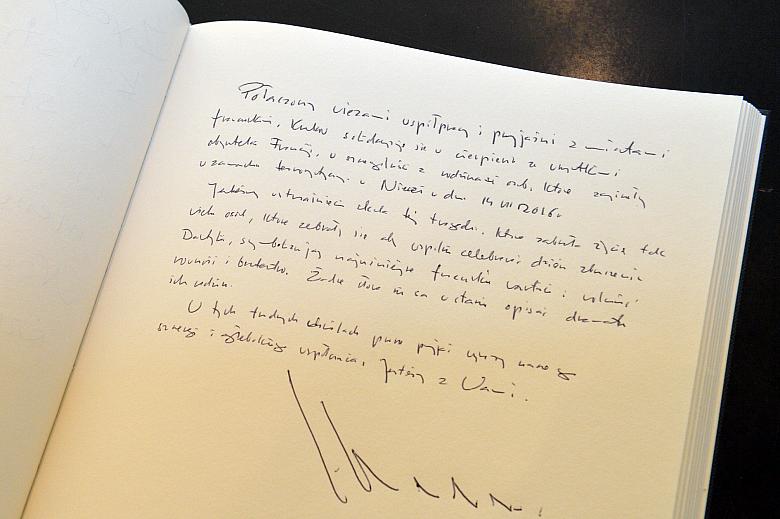 Połączony więzami współpracy i przyjaźni z miastami
francuskimi, Kraków solidaryzuje się w cierpieniu z wszystkimi
obywatelami Francji, w szczególności z rodzinami osób, które zginęły
w zamachu terrorystycznym w Nicei w dniu 14 VII 2016.
Jesteśmy wstrząśnięci skalą tej tragedii, która zabrała życie tak
wielu osób, które zebrały się aby wspólnie celebrować dzień zburzenia
Bastylii, symbolizujący najważniejsze francuskie wartości: wolność
równość i braterstwo. Żadne słowa nie są w stanie opisać dramatu
ich rodzin.
W tych trudnych chwilach proszę przyjąć wyrazy naszego
szczerego i głębokiego współczucia. Jesteśmy z Wami.